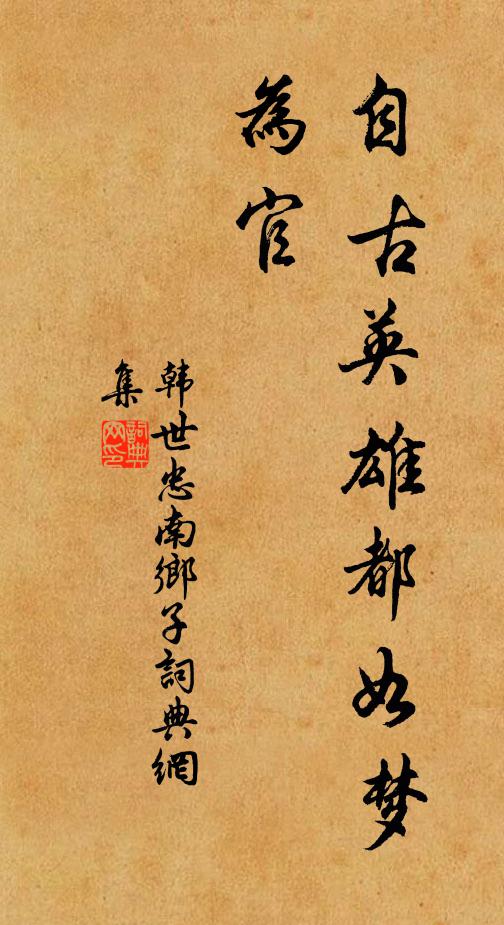 自古英雄都如梦
為官
韩世忠南鄉子詞典網
集
詞典
网印